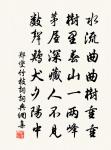 水流曲曲樹重重
樹裏春山一兩峰
茅屋深藏人不見
數聲雞犬夕陽中
鄭燮竹枝詞